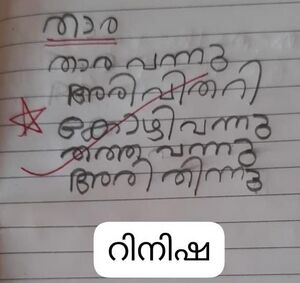 താര
താര വന്നു
അരി വിതറി
കോഴി വന്നു
തത്ത വന്നു
അരി തിന്നു
റിനിഷ